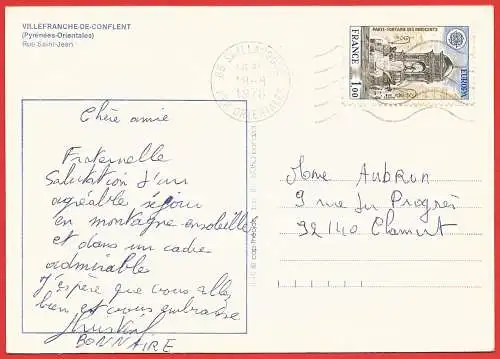 VILLEFRANCHE-DE-CONFLENT
(Pyrénées-Orientales)
Rue Saint-Jean
PARIS - FONTAINE DES INNOCENTS
FRANCE
1,00
EUROPA
1978
Chère amie
Fraternelle
Salutation d'un
agréable séjour
en montagne ensoleillée
et dans un cadre
admirable
J'espère que vous allez
bien et vous embrasse
BONNAIRE
Mme AUBRUN
9 rue du Progrès
92140 Clamart